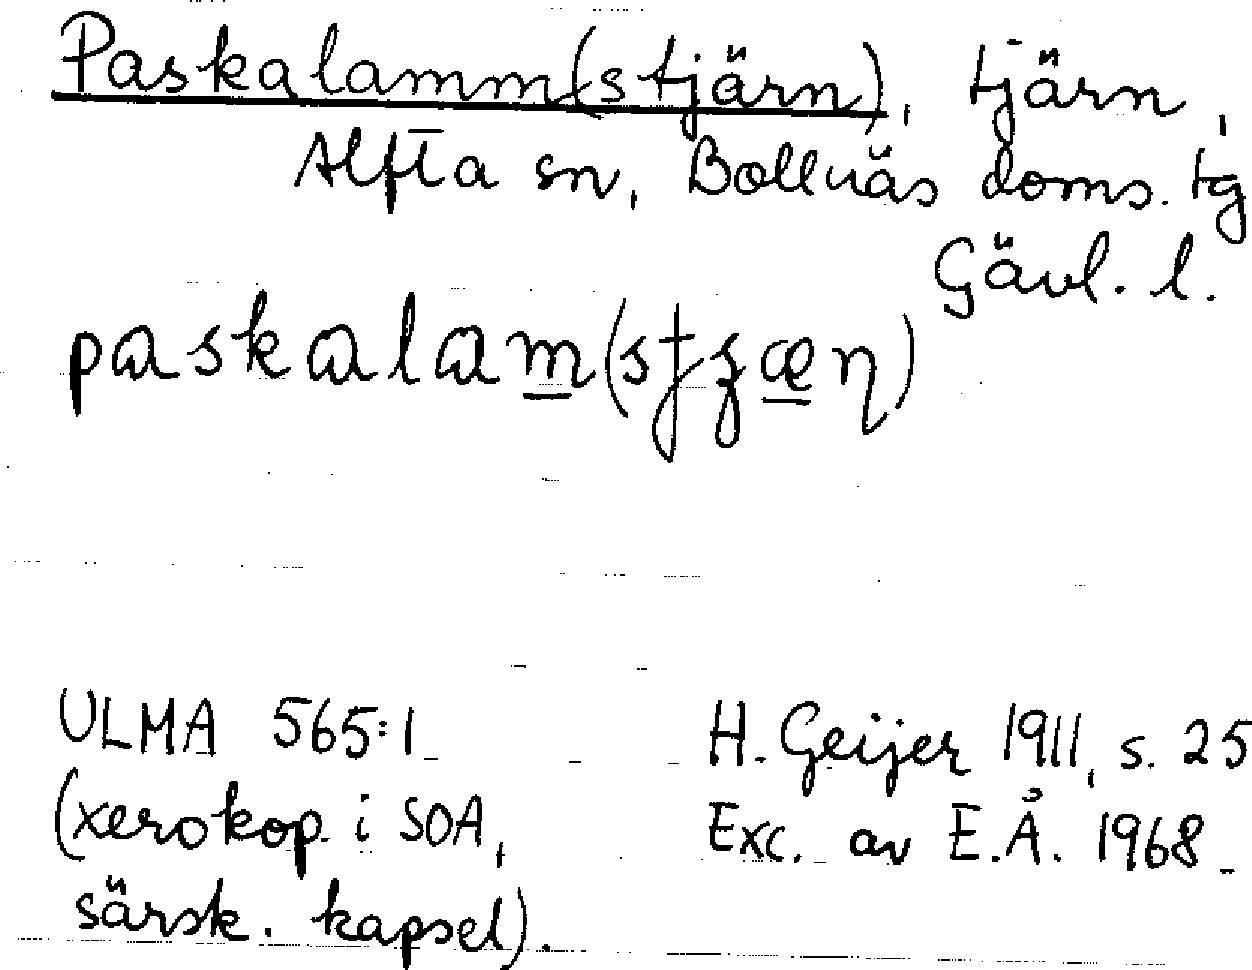 Paskalamm(stjärn), tjärn,
Alfta sn, Bollnäs doms. tg
Gävl. l.
paskalam(stʒæŋ)
ULMA 565:1
H. Geijer 1911, s. 25
(xerokop. i SOA,
Exc. av E.Å. 1968
särsk. kapsel).